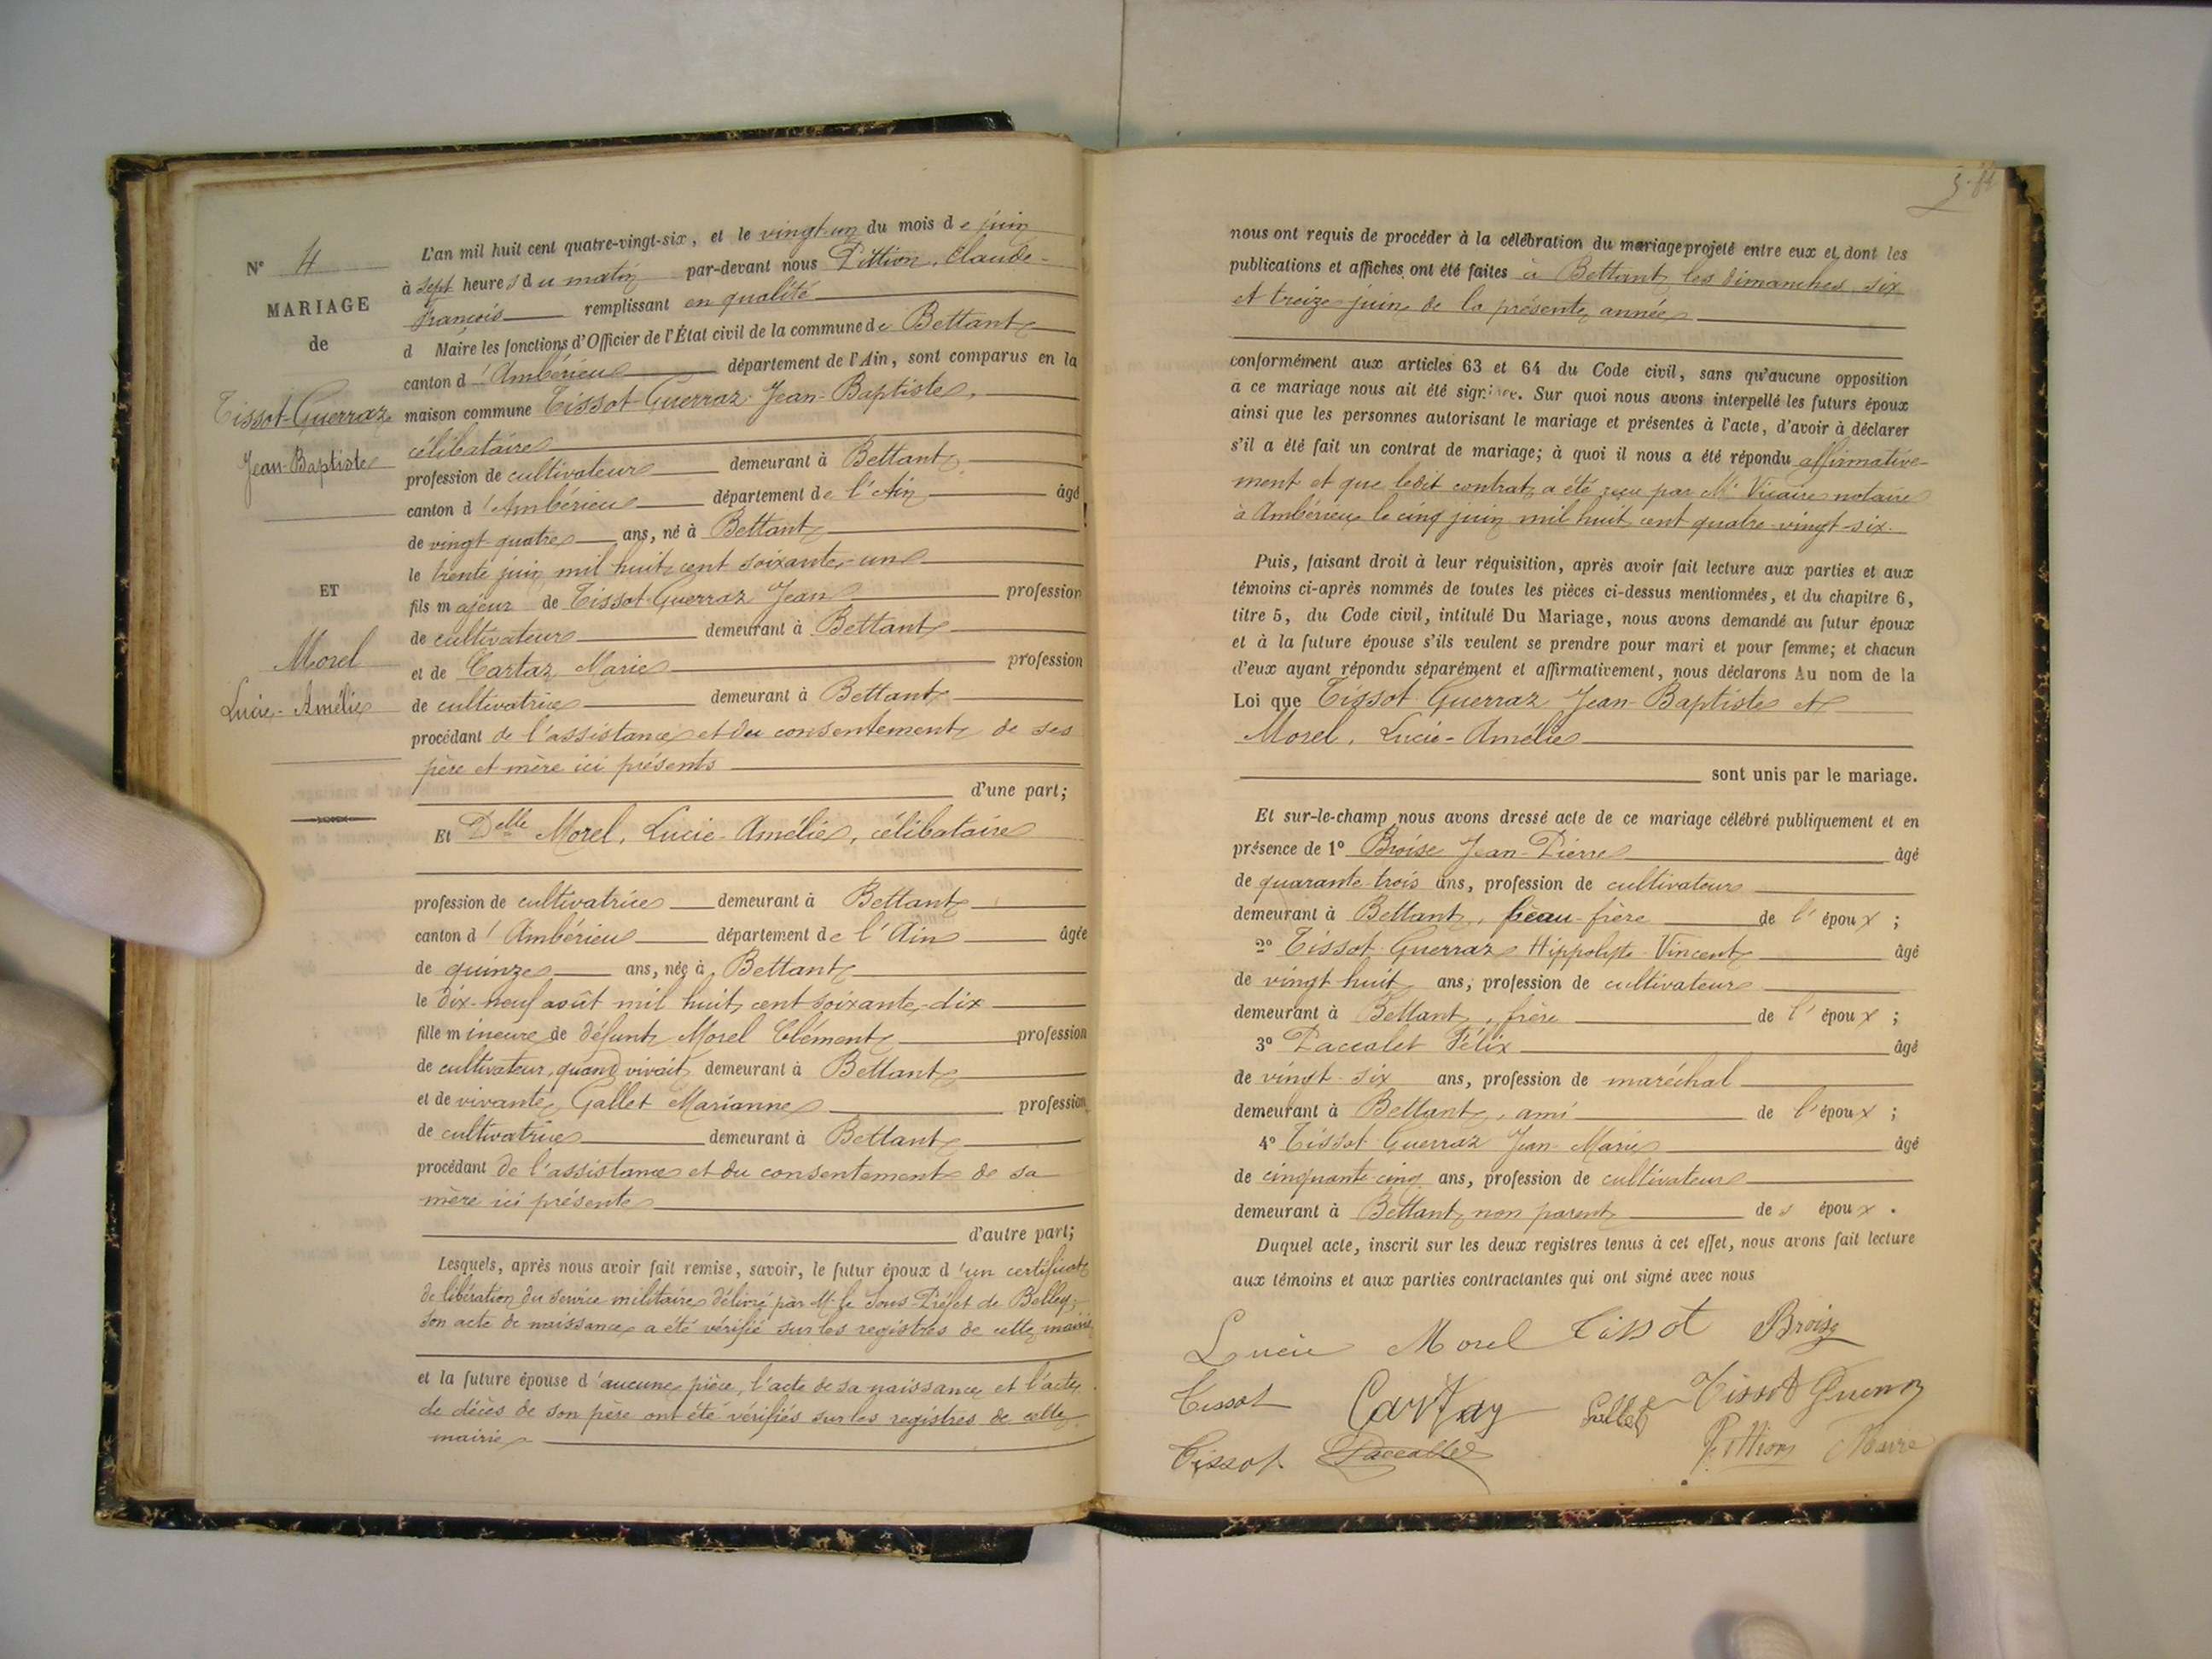 N° 4
MARIAGE
de
Tissot-Guerraz
Jean-Baptiste
ET
Morel
Lucie-Amélie
L'an mil huit cent quatre-vingt-six, et le vingt-un du mois de juin
à sept heures du matin par-devant nous Pittion, Claude-
François remplissant en qualité
d Maire les fonctions d'Officier de l'État civil de la commune de Bettant
canton d'Ambérieu département de l'Ain, sont comparus en la
maison commune Tissot-Guerraz Jean-Baptiste,
célibataire
profession de cultivateur demeurant à Bettant
canton d'Ambérieu département de l'Ain âgé
de vingt-quatre ans, né à Bettant
le trente juin mil huit cent soixante-un
fils majeur de Tissot-Guerraz Jean profession
de cultivateur demeurant à Bettant
et de Cartaz Marie profession
de cultivatrice demeurant à Bettant
procédant de l'assistance et du consentement de ses
père et mère ici présents
d'une part;
Et Delle Morel, Lucie-Amélie, célibataire
profession de cultivatrice demeurant à Bettant
canton d'Ambérieu département de l'Ain âgée
de quinze ans, née à Bettant
le dix-neuf août mil huit cent soixante-dix
fille mineure de défunt Morel Clément profession
de cultivateur, quand vivait demeurant à Bettant
et de vivante Gallet Marianne profession
de cultivatrice demeurant à Bettant
procédant de l'assistance et du consentement de sa
mère ici présente
d'autre part;
Lesquels, après nous avoir fait remise, savoir, le futur époux d'un certificat
de libération du service militaire délivré par Mr le Sous-Préfet de Belley;
son acte de naissance a été vérifié sur les registres de cette mairie
et la future épouse d'aucune pièce, l'acte de sa naissance et l'acte
de décès de son père ont été vérifiés sur les registres de cette
mairie
nous ont requis de procéder à la célébration du mariage projeté entre eux et dont les
publications et affiches ont été faites à Bettant les dimanches six
et treize juin de la présente année
conformément aux articles 63 et 64 du Code civil, sans qu'aucune opposition
a ce mariage nous ait été signifiée. Sur quoi nous avons interpellé les futurs époux
ainsi que les personnes autorisant le mariage et présentes à l'acte, d'avoir à déclarer
s'il a été fait un contrat de mariage; à quoi il nous a été répondu affirmative-
ment et que ledit contrat a été reçu par Me Vicaire notaire
à Ambérieu le cinq juin mil huit cent quatre-vingt-six.
Puis, faisant droit à leur réquisition, après avoir fait lecture aux parties et aux
témoins ci-après nommés de toutes les pièces ci-dessus mentionnées, et du chapitre 6,
titre 5, du Code civil, intitulé Du Mariage, nous avons demandé au futur époux
et à la future épouse s'ils veulent se prendre pour mari et pour femme; et chacun
d'eux ayant répondu séparément et affirmativement, nous déclarons Au nom de la
Loi que Tissot-Guerraz Jean-Baptiste et
Morel, Lucie-Amélie
sont unis par le mariage.
Et sur-le-champ nous avons dressé acte de ce mariage célébré publiquement et en
présence de 1° Broise Jean-Pierre âgé
de quarante-trois ans, profession de cultivateur
demeurant à Bettant, beau-frère de l'époux;
2° Tissot-Guerraz Hippolyte-Vincent âgé
de vingt-huit ans, profession de cultivateur
demeurant à Bettant, frère de l'époux;
3° Paccalet Félix âgé
de vingt-six ans, profession de maréchal
demeurant à Bettant, ami de l'époux;
4° Tissot-Guerraz Jean-Marie âgé
de cinquante-cinq ans, profession de cultivateur
demeurant à Bettant non parent des époux.
Duquel acte, inscrit sur les deux registres tenus à cet effet, nous avons fait lecture
aux témoins et aux parties contractantes qui ont signé avec nous
Lucie Morel Tissot Broise
Tissot Cartaz Gallet Tissot Guerraz
Tissot Paccallet Pittion Maire